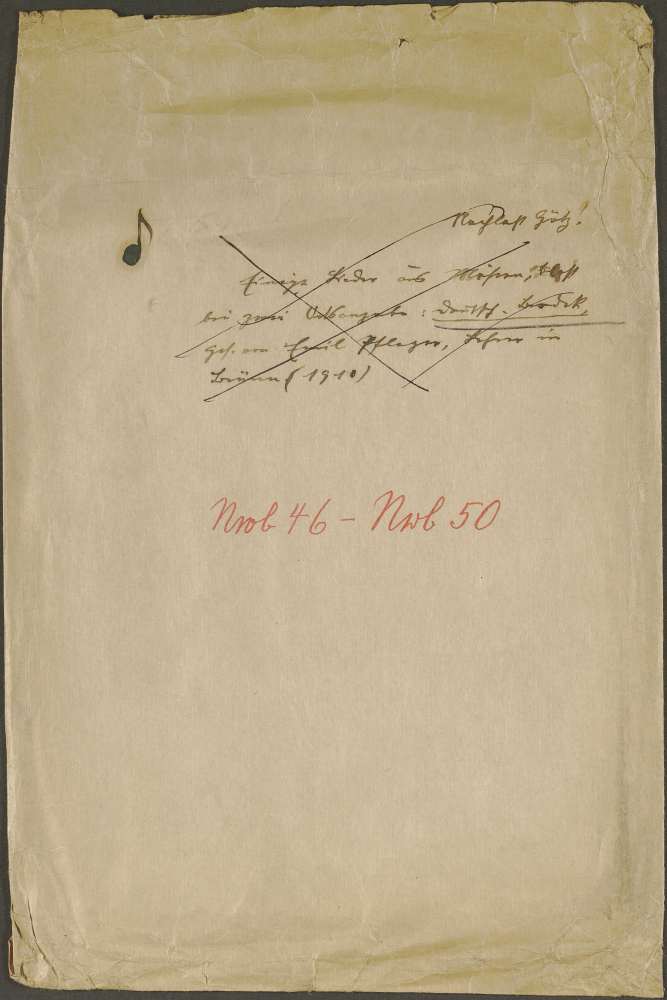 Nachlaß Götz!
Einige Lieder aus Mähren,
bei zwei Ortsangabe: Deutsch-Brodek,
ges. von Emil Pfleger, Lehrer in
Brünn (1910)
Nwb 46 - Nwb 50